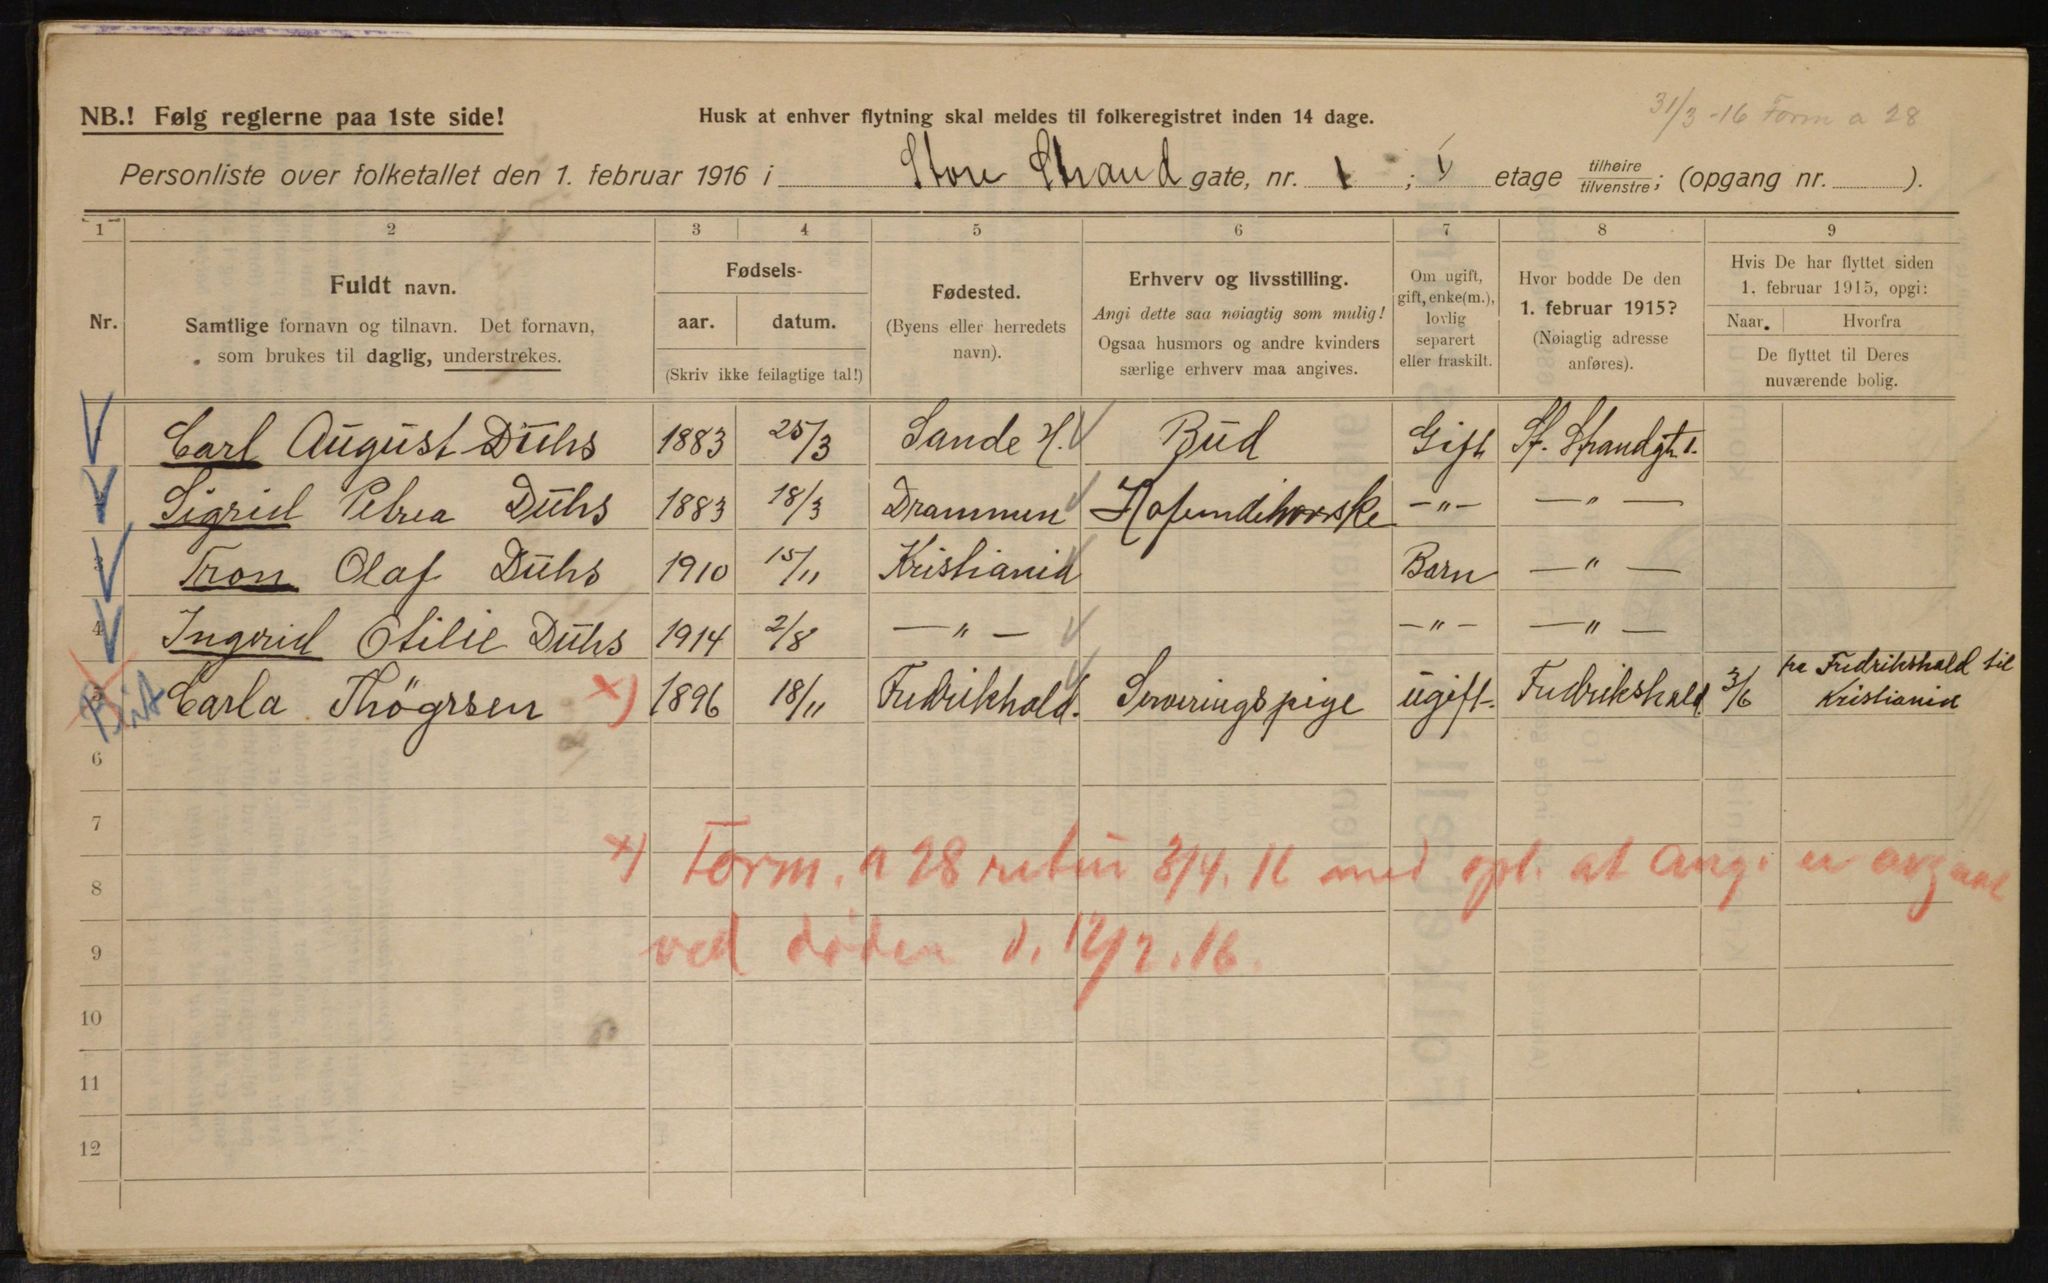 31/3 -16 Form a 28
NB.! Følg reglerne paa 1ste side!
Husk at enhver flytning skal meldes til folkeregistret inden 14 dage.
Personliste over folketallet den 1. februar 1916 i Store Strand gate, nr. 1 ; I etage tilhøire/tilvenstre; (opgang nr. ).
1 2 3 4 5 6 7 8 9
Nr.
Fuldt navn.
Samtlige fornavn og tilnavn. Det fornavn,
som brukes til daglig, understrekes.
Fødsels-
aar. datum.
(Skriv ikke feilagtige tal!)
Fødested.
(Byens eller herredets
navn).
Erhverv og livsstilling.
Angi dette saa nøiagtig som mulig!
Ogsaa husmors og andre kvinders
særlige erhverv maa angives.
Om ugift,
gift, enke(m.),
lovlig
separert
eller fraskilt.
Hvor bodde De den
1. februar 1915?
(Nøiagtig adresse
anføres).
Hvis De har flyttet siden
1. februar 1915, opgi:
Naar. Hvorfra
De flyttet til Deres
nuværende bolig.
Carl August Dühs 1883 25/3 Sande Bud Gift St. Strandgt. 1.
Sigrid Petrea Dühs 1883 18/3 Drammen -"- -"-
3 Tron Olaf Dühs 1910 15/11 Kristiania Barn -"-
4 Ingrid Otilie Dühs 1914 2/8 -"- -"- -"-
5 Carla Thögrsen x) 1896 18/11 Fredrikhald. Serveringspige ugift. Fredrikshald 3/6 fra Fredrikshald til
Kristiania
6
7
x) Form. a 28 retur 3/4. 16 med opl. at ang. er avgaat
8
ved døden d. 12/2. 16.
9
10
11
12